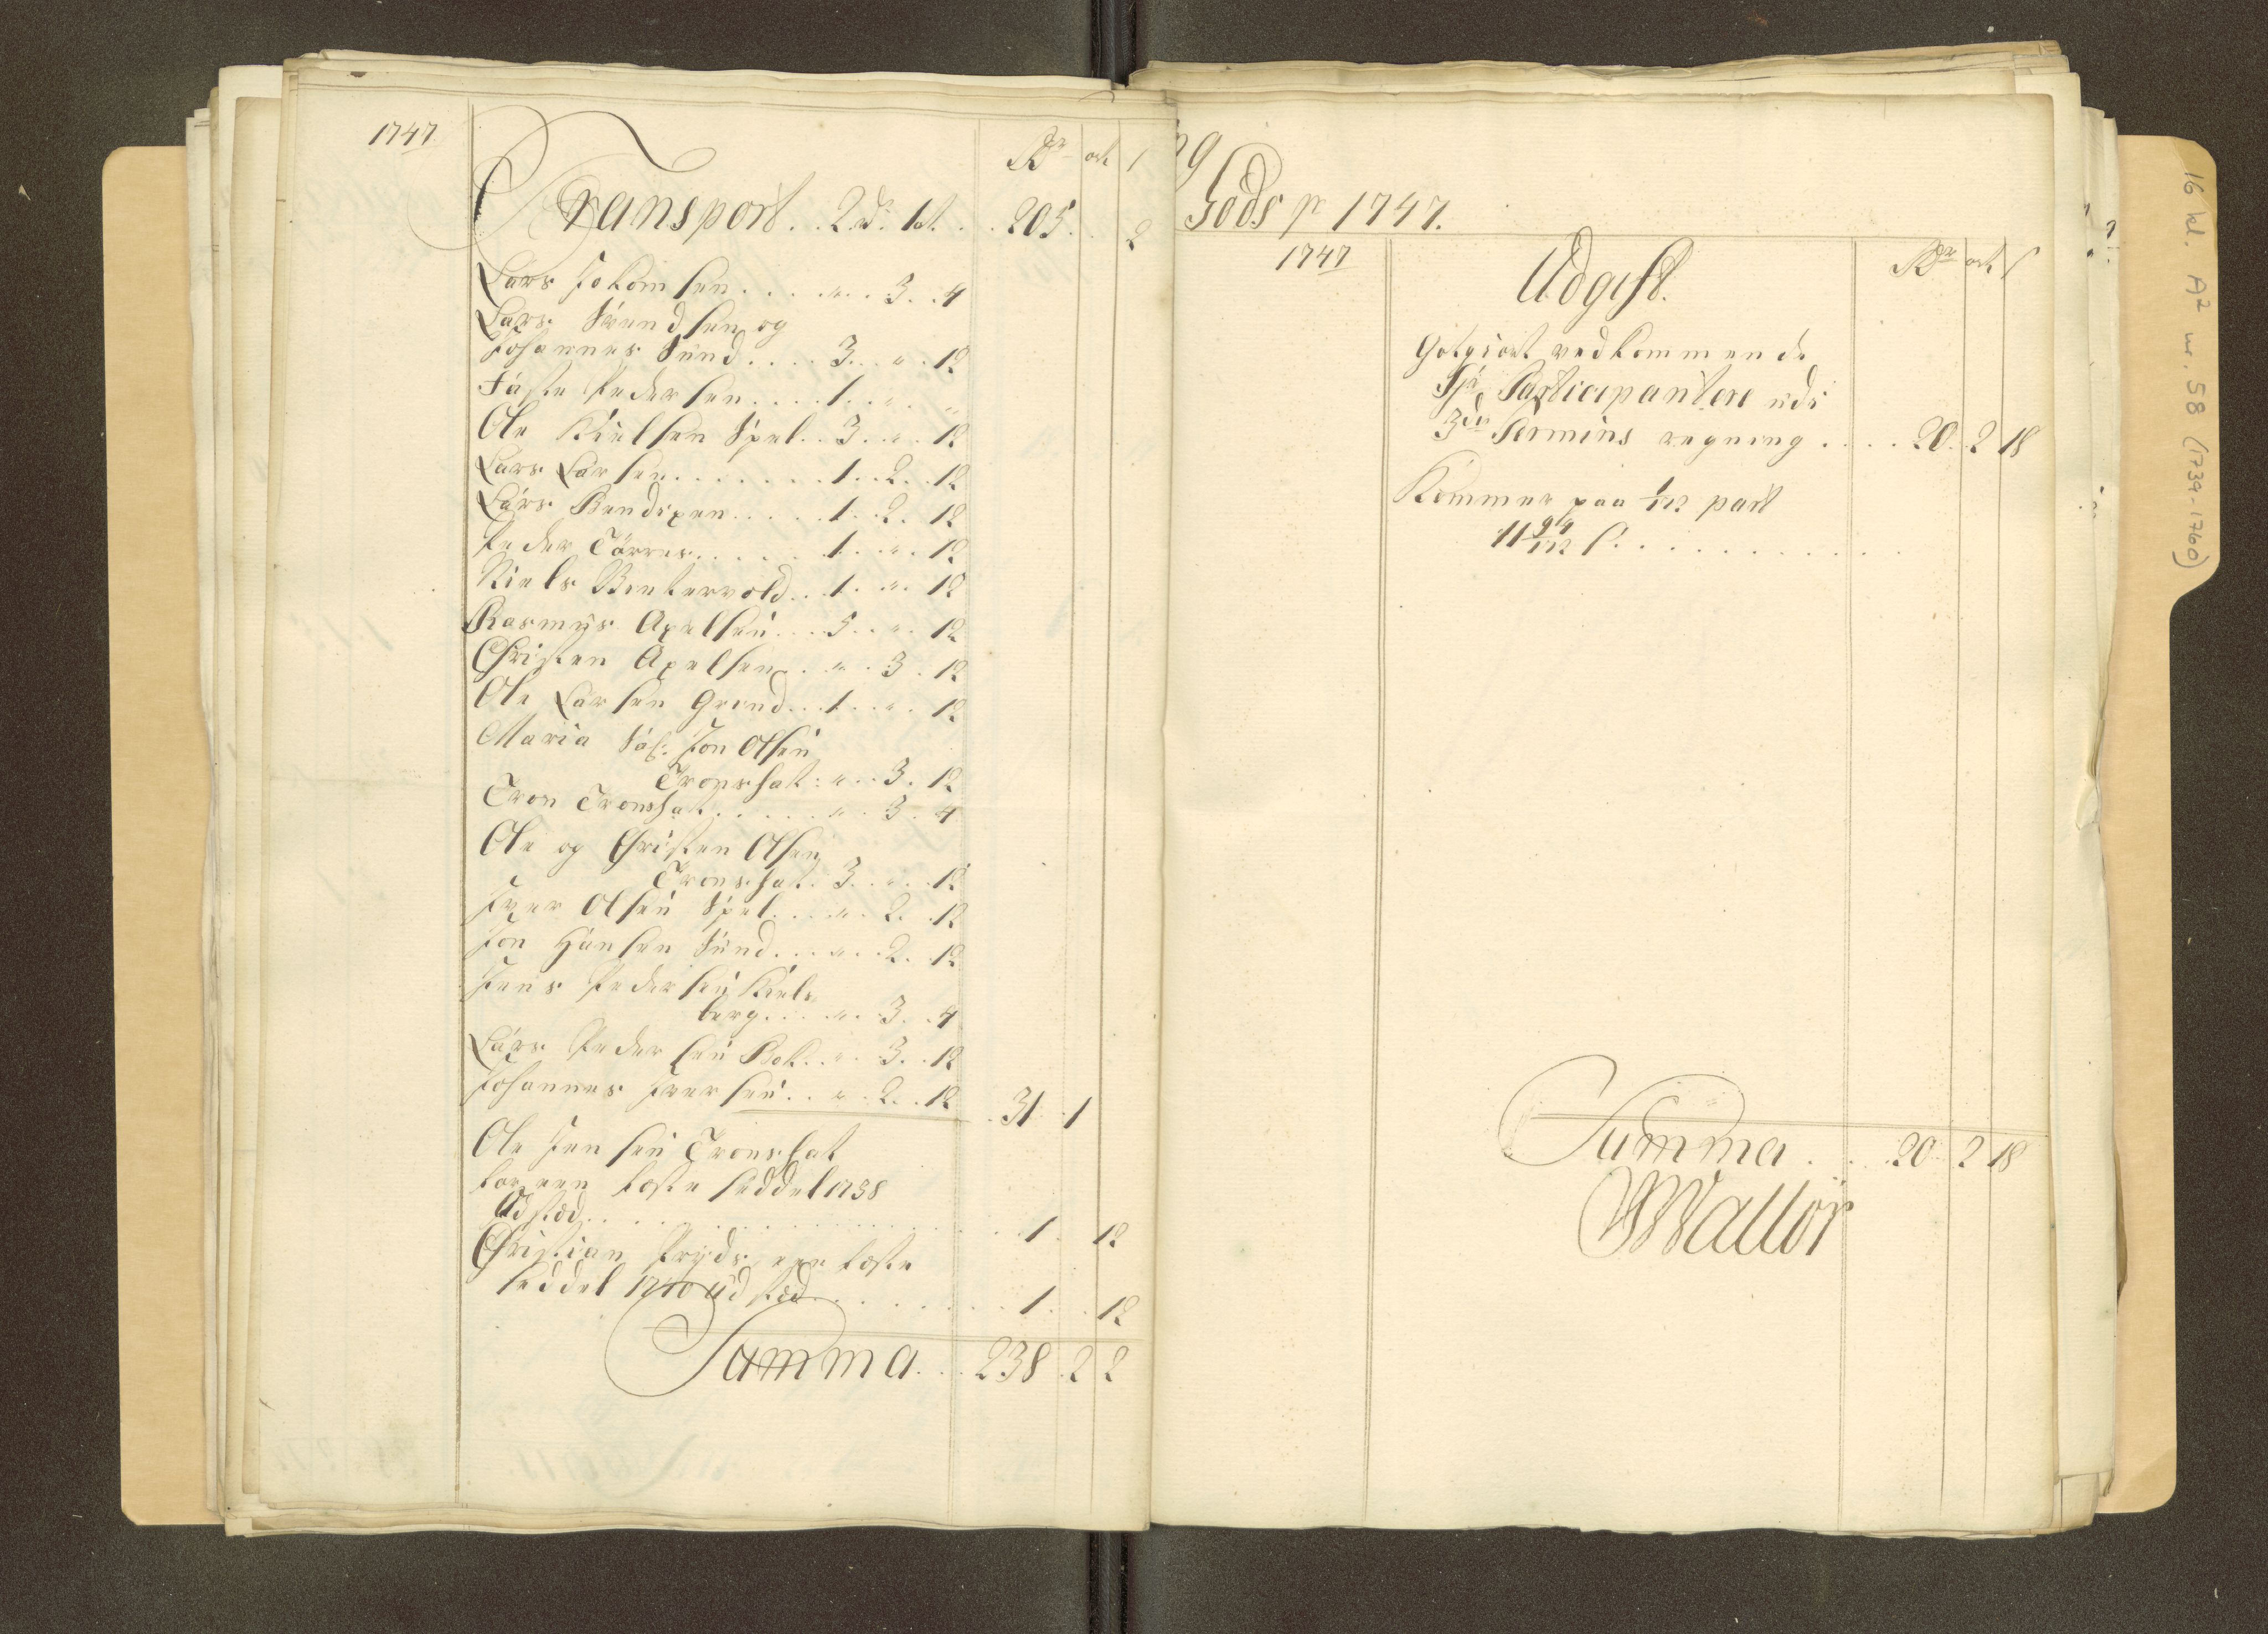 1747
Rdr ort s
Transport . . 2de 1st . . 205 . . 2
Lars Jokomsen . . . „ . . 3 . . 4
Lars Svendsen og
Johannes Sund . . . . 3 . . „ . 12
Faste Pedersen . . . . 1 . „ . „
Ole Kielsen Spel . . 3 . „ . 12
Lars Larsen . . . . . . 1 . . 2 . . 12
Lars Bendixen . . . . . 1 . . 2 . 12
Peder Törres . . . . . 1 . . „ . 12
Niels Bentervold . . 1 . „ . 12
Rasmus Axelsen . . . 5 . . „ . 12
Christen Axelsen . . „ . 3 . 12
Ole Larsen Grend . . 1 . . „ . 12
Maria Sal: Jon Olsen
Tronshat : „ . . 3 . 12
Tron Tronshat . . . . . „ . 3 . 4
Ole og Christen Olsen
Tronshat . 3 . . „ . 12
Iver Olsen Spel . . . „ . 2 . . 12
Jon Hansen Sund . . . „ . . 2 . . 12
Jens Pedersen Kiels
berg . . . „ . . 3 . . 4
Lars Pedersen Bok . . „ . 3 . . 12
Johannes Iversen . . „ . 2 . . 12 . 31 . 1
Ole Jensen Tronshat
for een fæste seddel 1738
Udsted . . . . . 1 . 12
Christian Fryds een fæste
seddel 1740 udsted . . . . . 1 . . 12
Summa . . . 238 . 2 2
Gods pr 1747.
1747
Udgift.
Rdr ort s
Gotgiort vedkommende
Participantere udi
3de Termins regning . . . . 20 . 2 18
Kommer paa 1/172 part
11 94/172 s . . . . . . . . . .
Summa . . . 20 . 2 18
Wallör
16 kl. A2 nr. 58 (1739-1760)